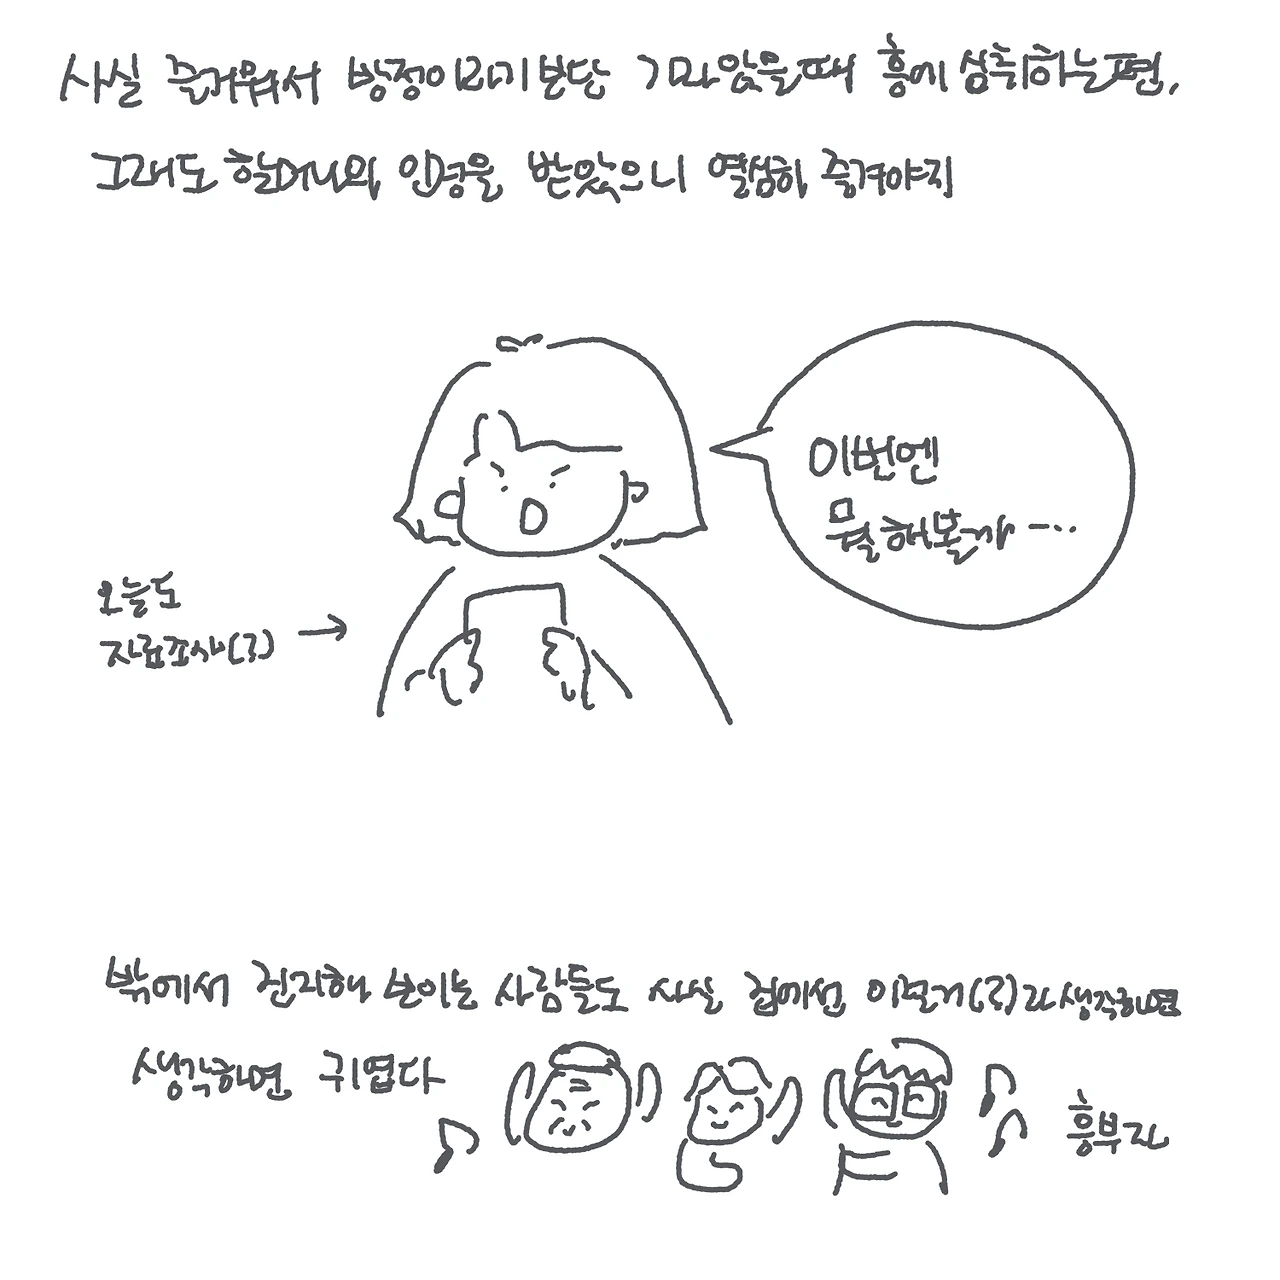 사실 즐거워서 방정이라기보단 기괴않을때 흥에 심취하는편,
그래도 할머니와 인정을 받았으니 열심히 즐겨야지
이번엔
뭘 해볼까…
오늘도
자료조사(?)
밖에서 진지해 보이는 사람들도 사실 집에선 이런거(?)라 생각하면
생각하면 귀엽다
흥부자